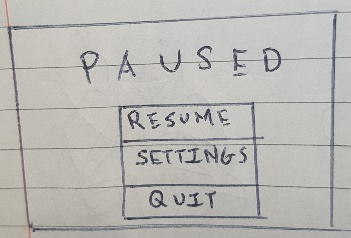 PAUSED
RESUME
SETTINGS
QUIT